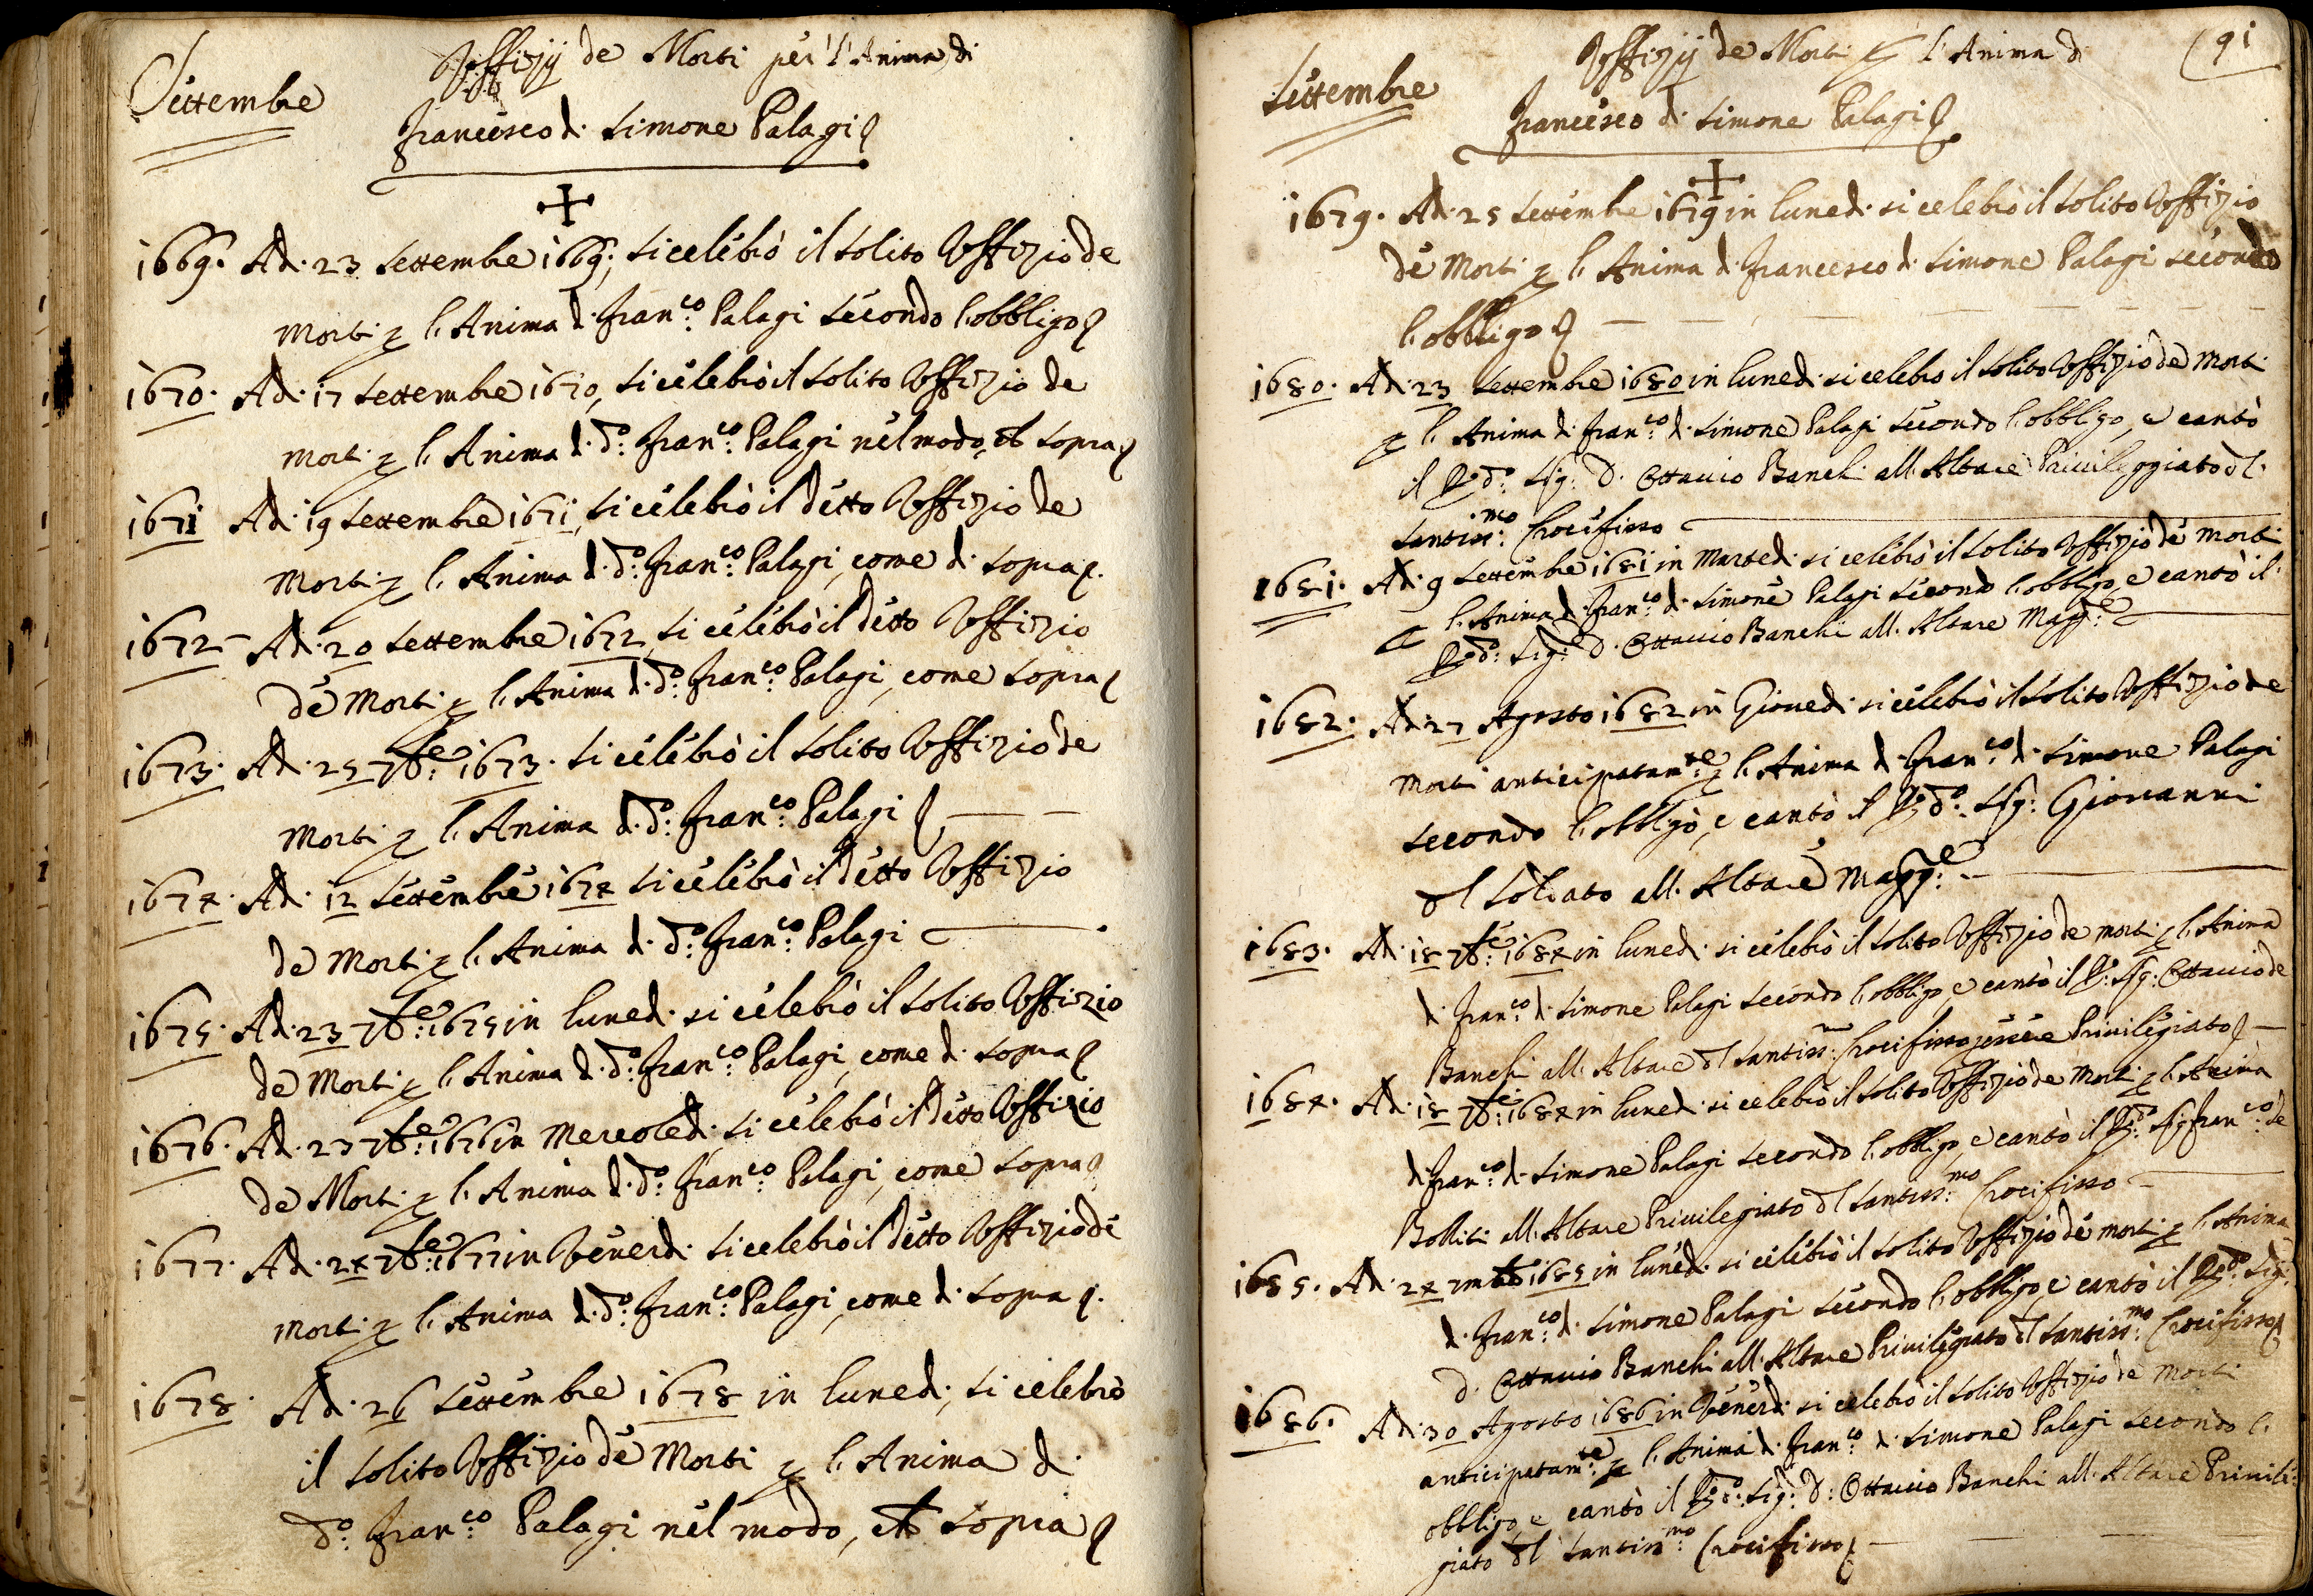 Settembre
Uffizij de Morti per l'Anima di
Francesco di Simone Palagi
1669. Adi 23 Settembre 1669, si celebrò il solito Uffizio de
Morti p l'Anima di Fran.co Palagi secondo l'obbligo
1670. Adi 17 Settembre 1670, si celebrò il solito Uffizio de
Morti p l'Anima di d.o Fran.co Palagi nel modo, sopra
1671 Adi 19 Settembre 1671, si celebrò il detto Uffizio de
Morti p l'Anima di d.o Fran.co Palagi, come di sopra.
1672 Adi 20 Settembre 1672, si celebrò il detto Uffizio
de Morti p l'Anima di d.o Fran.co Palagi, come sopra
1673. Adi 25 7bre 1673. si celebrò il solito Uffizio de
Morti p l'Anima di d.o Fran.co Palagi
1674. Adi 12 Settembre 1674 si celebrò il detto Uffizio
de Morti p l'Anima di d.o Fran.co Palagi
1675. Adi 23 7bre 1675 in lunedi si celebrò il solito Uffizio
de Morti p l'Anima di d.o Fran.co Palagi, come di sopra
1676. Adi 23 7bre 1676 in Mercoledi si celebrò il detto Uffizio
de Morti p l'Anima di d.o Fran.co Palagi, come sopra
1677. Adi 24 7bre 1677 in Venerdi si celebrò il detto Uffizio de
Morti p l'Anima di d.o Fran.co Palagi, come di sopra.
1678. Adi 26 Settembre 1678 in lunedi, si celebrò
il solito Uffizio de Morti p l'Anima di
d.o Fran.co Palagi nel modo, sopra
91
Settembre
Uffizij de Morti p l'Anima di
Francesco di Simone Palagi
1679. Adi 25 Settembre 1679 in lunedi si celebrò il solito Uffizio
de Morti p l'Anima di Francesco di Simone Palagi secondo
l'obbligo
1680. Adi 23 Settembre 1680 in lunedi si celebrò il solito Uffizio de Morti
p l'Anima di Fran.co di Simone Palagi secondo l'obbligo, e cantò
il R.do Sig: D. Ottavio Banchi all'Altare Privileggiato del
Santiss.mo Crocifisso
1681. Adi 9 Settembre 1681 in Martedi si celebrò il solito Uffizio de Morti
l'Anima di Fran.co di Simone Palagi secondo l'obbligo, e cantò il
R.do Sig: D. Ottavio Banchi all'Altare Magg.e
1682. Adi 27 Agosto 1682 in Giovedi si celebrò il solito Uffizio de
Morti anticipatam.te p l'Anima di Fran.co di Simone Palagi
secondo l'obbligo, e cantò il R.do Sig: Giovanni
del Soldato all'Altare Magg.e
1683. Adi 18 7bre 1684 in lunedi si celebrò il solito Uffizio de morti p l'Anima
di Fran.co di Simone Palagi secondo l'obbligo, e cantò il R. Sig: Ottavio de
Banchi all'Altare del Santiss.mo Crocifisso essere Privilegiato
1684. Adi 18 7bre 1684 in lunedi si celebrò il solito Uffizio de Morti p l'Anima
di Fran.co di Simone Palagi secondo l'obbligo, e cantò il R.do Sig Fran.co de
Bolliti all'Altare Privilegiato del Santiss.mo Crocifisso
1685. Adi 24 1685 in lunedi si celebrò il solito Uffizio de morti p l'Anima
di Fran.co di Simone Palagi secondo l'obbligo, e cantò il R.do Sig:
D. Ottavio Banchi all'Altare Privilegiato del Santiss.mo Crocifisso
1686. Adi 30 Agosto 1686 in Venerdi si celebrò il solito Uffizio de Morti
anticipatam.te p l'Anima di Fran.co di Simone Palagi secondo l'
obbligo, e cantò il R.do Sig: D: Ottavio Banchi all'Altare Privile
giato del Santiss.mo Crocifisso